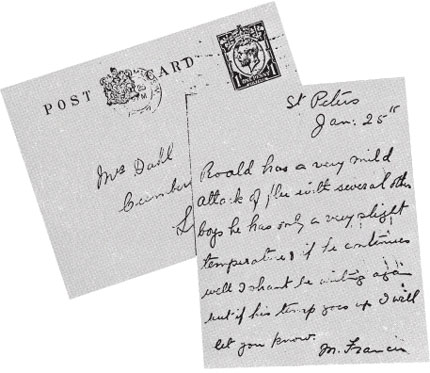 POST CARD
Mrs Dahl
St Peters
Jan: 25th
Roald has a very mild
attack of flu with several other
boys he has only a very slight
temperature; if he continues
well I shan't be writing again
but if his temp goes up I will
let you know.
M. Francis